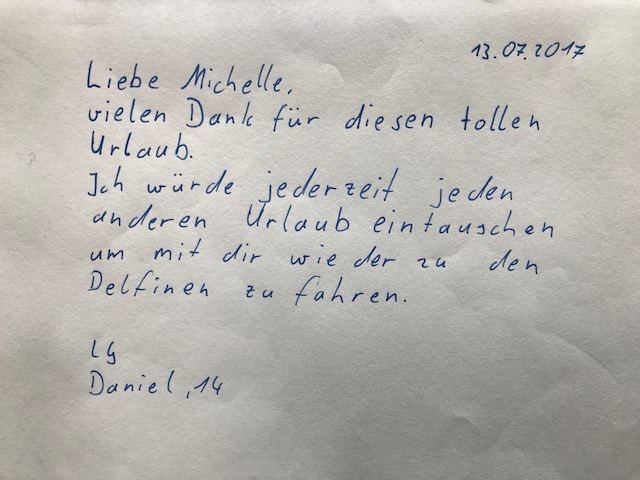 13.07.2017
Liebe Michelle,
vielen Dank für diesen tollen
Urlaub.
Ich würde jederzeit jeden
anderen Urlaub eintauschen
um mit dir wieder zu den
Delfinen zu fahren.
LG
Daniel, 14